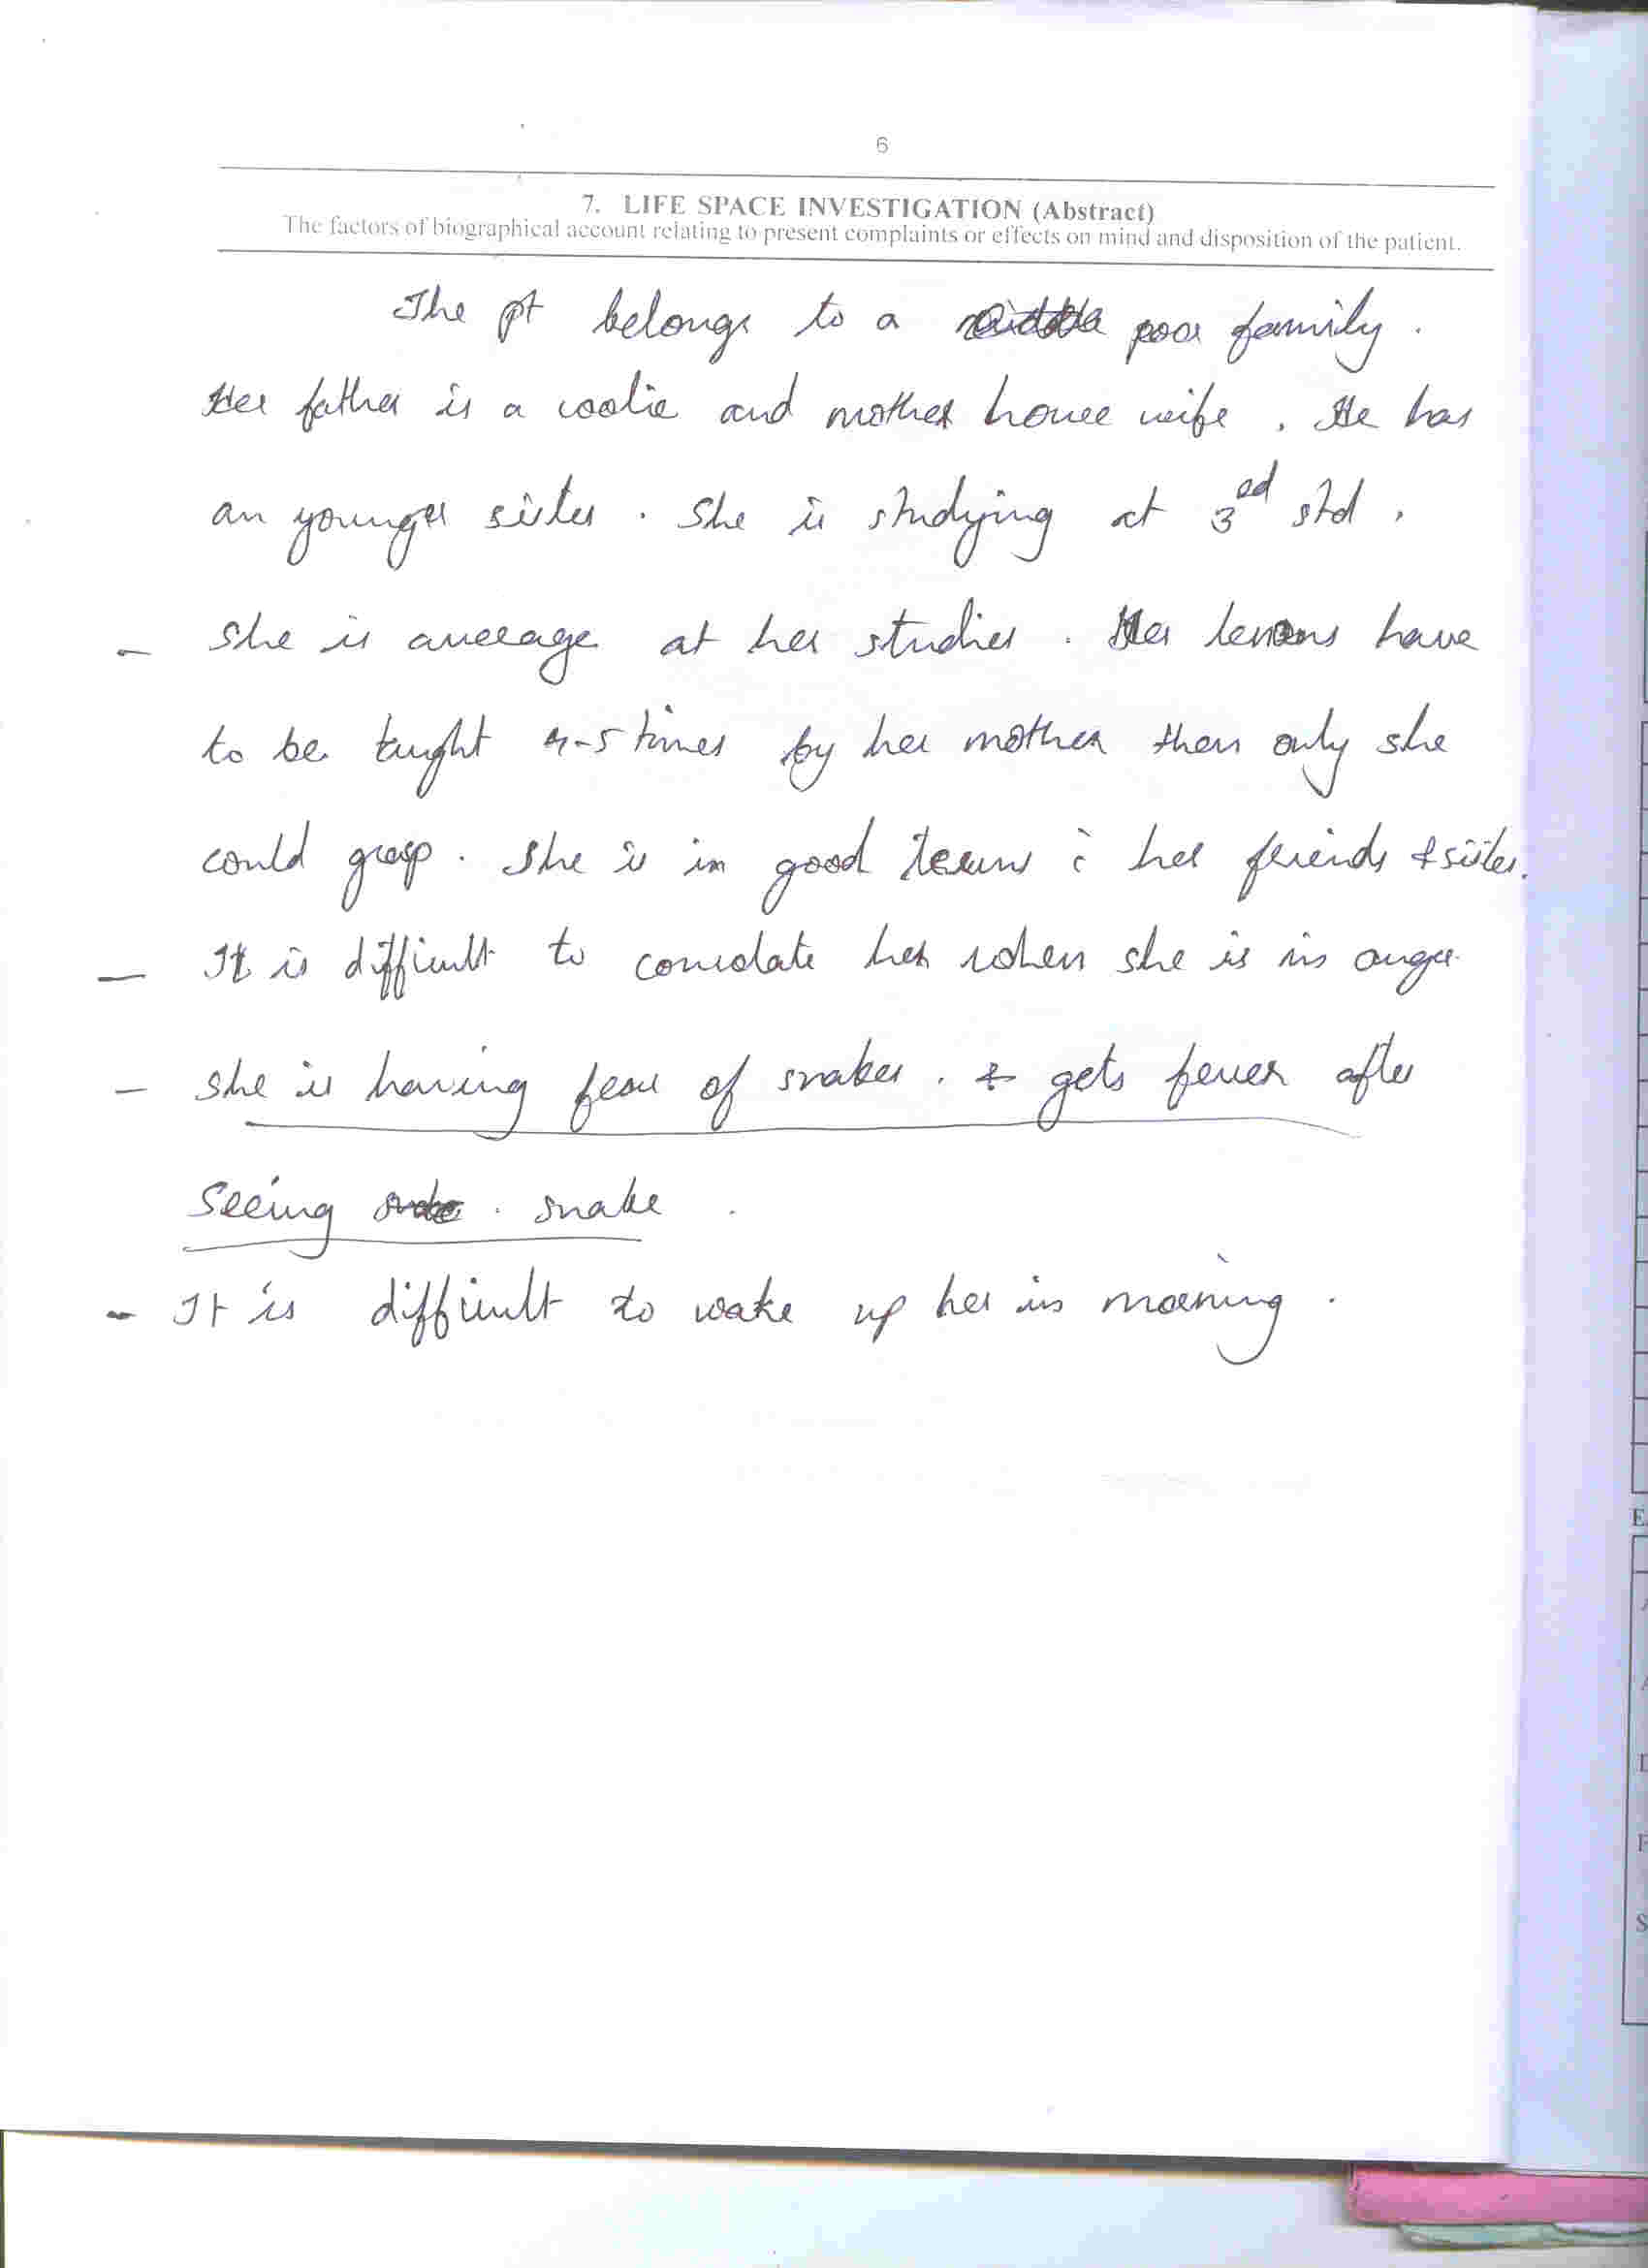 6
7. LIFE SPACE INVESTIGATION (Abstract)
The factors of biographical account relating to present complaints or effects on mind and disposition of the patient.
The pt belongs to a poor family.
Her father is a coolie and mother house wife. He has
an younger sister. She is studying at 3rd std.
- She is average at her studies. Her lessons have
to be taught 4-5 times by her mother then only she
could grasp. She is in good terms c̄ her friends & sister.
- It is difficult to consolate her when she is in anger
- She is having fear of snakes. & gets fever after
seeing snake.
- It is difficult to wake up her in morning.